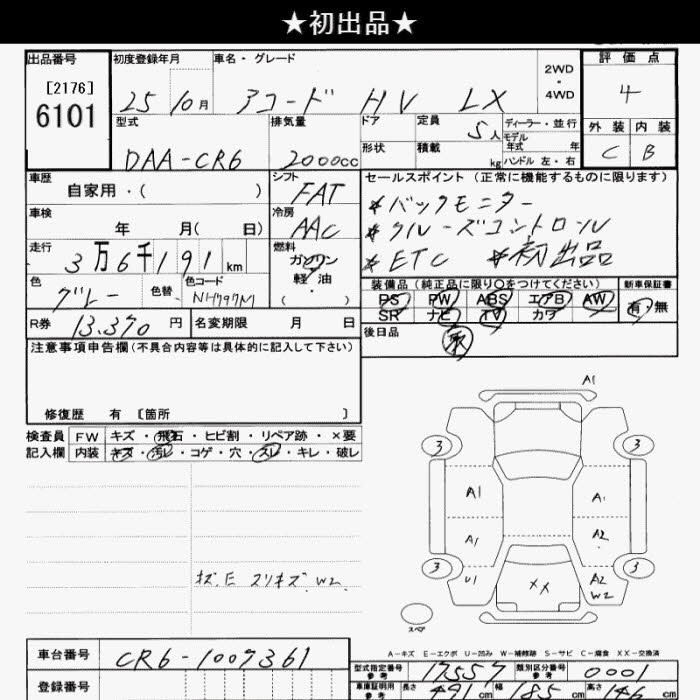 ★初出品★
出品番号 初度登録年月 車名・グレード 2WD・4WD 評価点
[2176]
6101 25 10月 アコード HV LX 4
型式 排気量 ドア 定員 5人 ディーラー・並行 外装 内装
モデル年式 年
DAA-CR6 2000cc 形状 積載 kg ハンドル 左・右 C B
車歴 シフト セールスポイント (正常に機能するものに限ります)
自家用・( ) FAT *バックモニター
車検 冷房 *クルーズコントロール
年 月( 日) AAC *ETC *初出品
走行 燃料
3万6千191km ガソリン
軽油
・( )
色 色替 色コード 装備品 (純正品に限り〇をつけてください) 新車保証書
グレー NH797M PS PW ABS エアB AW 有・無
R券 13.370円 名変期限 月 日 SR ナビ TV カワ
後日品
注意事項申告欄(不具合内容等は具体的に記入して下さい)
修復歴 有 〔箇所 〕
検査員 FW キズ・飛石・ヒビ割・リペア跡・×要
記入欄 内装 キズ・汚レ・コゲ・穴・スレ・キレ・破レ
A1
3 3
A1 A1
A1 A2
3 U1 XX A2 3
W2
キズ.E スリキズ.W2
スペア
A−キズ E−エクボ U−凹み W−補修跡 S−サビ C−腐食 XX−交換済
車台番号 CR6-1007361
型式指定番号 参考 17557 類別区分番号 参考 0001
登録番号 車庫証明用 参考 長さ 491cm 幅 185cm 高さ 146cm